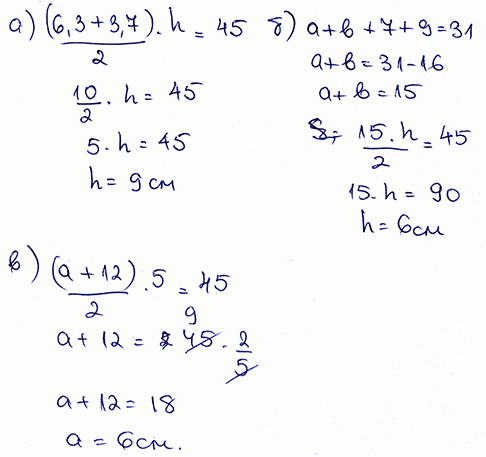 а) (6,3 + 3,7)/2 · h = 45
10/2 · h = 45
5 · h = 45
h = 9 см
б) a + b + 7 + 9 = 31
a + b = 31 - 16
a + b = 15
S = 15 · h/2 = 45
15 · h = 90
h = 6 см
в) (a + 12)/2 · 5 = 45
9
a + 12 = 45 · 2/5
a + 12 = 18
a = 6 см.